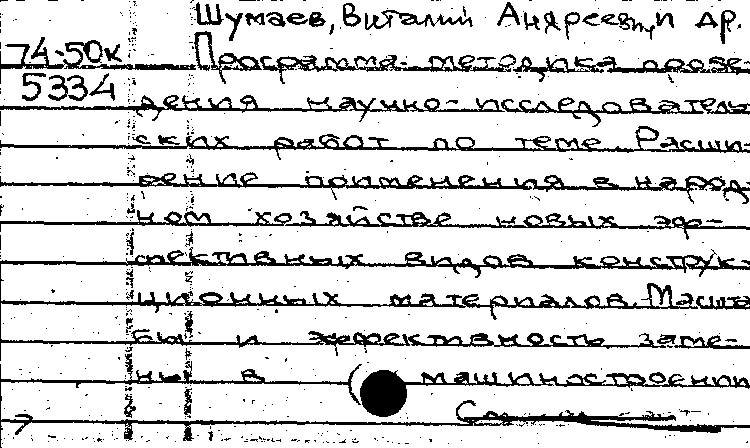 Шумаев, Виталий Андреевич и др.
74-50к Программа-методика прове-
5334 дения научно-исследователь
ских работ по теме Расши-
рение применения в народ
ном хозяйстве новых эф-
фективных видов конструк-
ционных материалов. Масшта
бы и эффективность заме-
ны в машиностроении